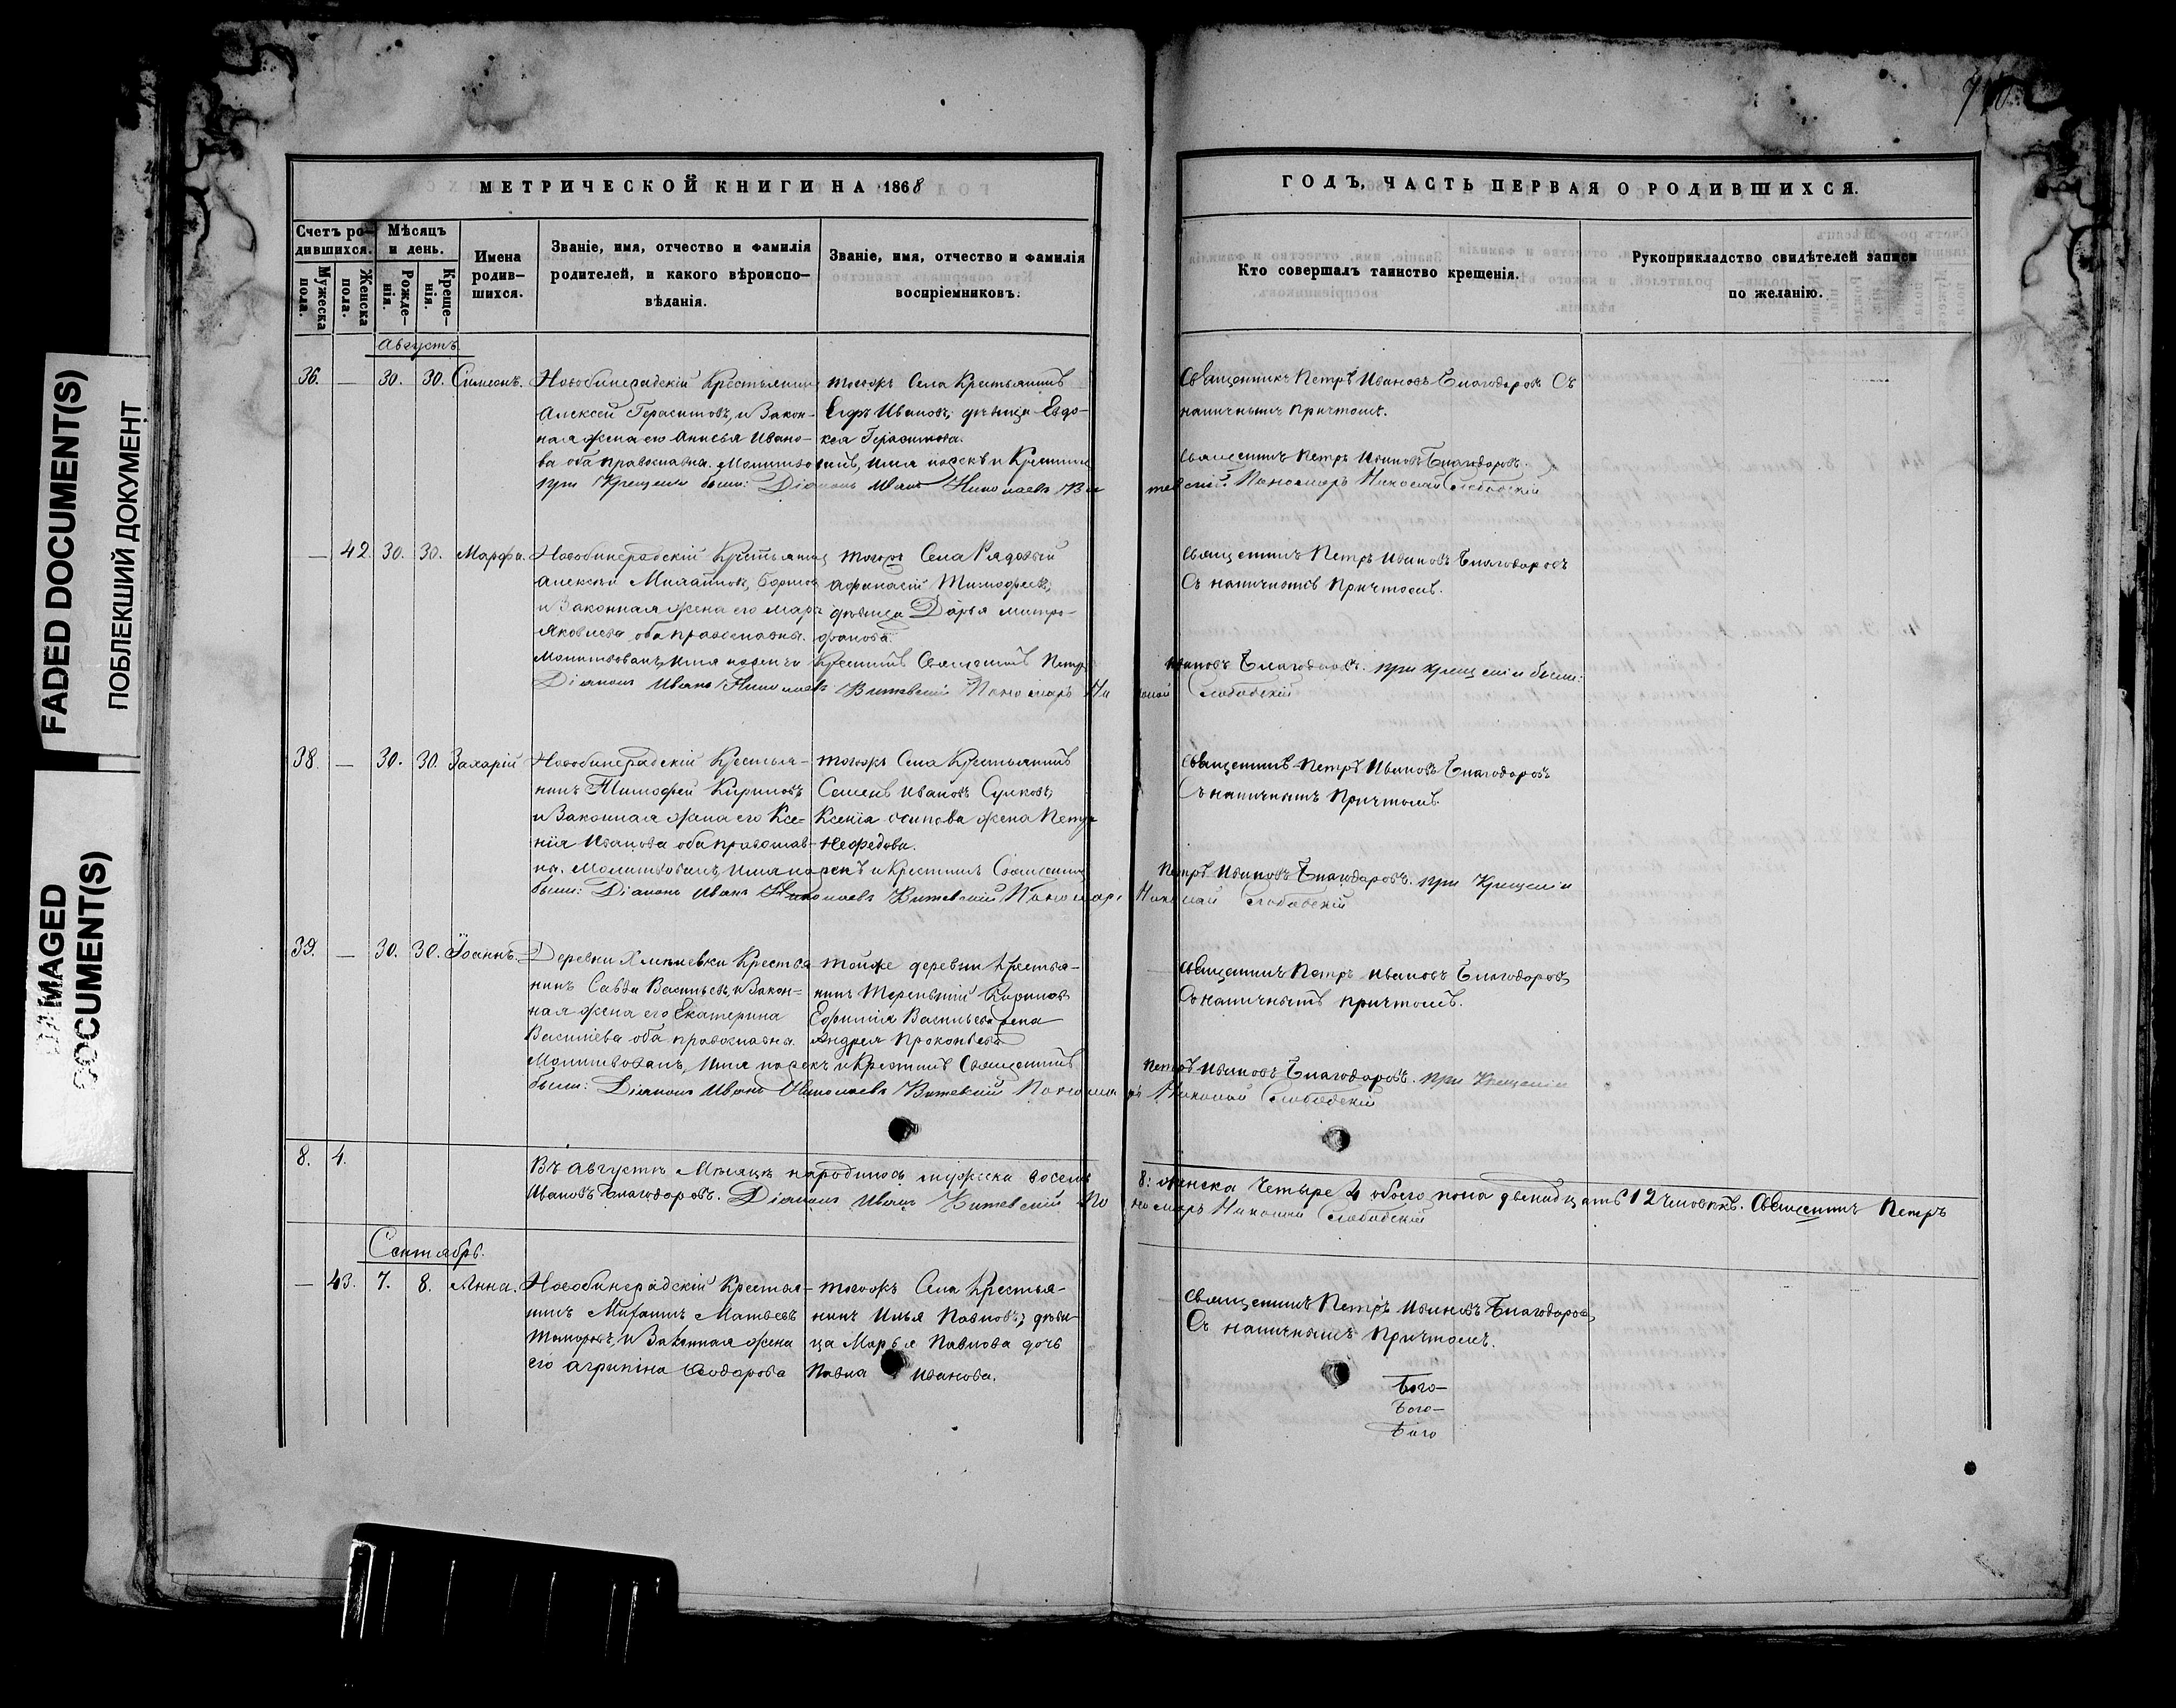 FADED DOCUMENT(S)
ПОБЛЕКШИЙ ДОКУМЕНТ
DAMAGED
DOCUMENT(S)
МЕТРИЧЕСКОЙ КНИГИ НА 1868
Счетъ ро-
дившихся.
Мѣсяцъ
и день.
Мужеска
пола.
Женска
пола.
Рожде-
нія.
Креще-
нія.
Имена
родив-
шихся.
Званіе, имя, отчество и фамилія
родителей, и какого вѣроиспо-
вѣданія.
Званіе, имя, отчество и фамилія
воспріемниковъ.
ГОДЪ, ЧАСТЬ ПЕРВАЯ О РОДИВШИХСЯ.
Кто совершалъ таинство крещенія.
Рукоприкладство свидѣтелей записи
по желанію.
Августъ
36. — 30. 30. Симеонъ.
Крестьянинъ
Алексей Герасимовъ, и Закон-
ная жена его Анисья Ивано-
ва оба православна.
тогожъ Села Крестьянинъ
Ивановъ; дѣвица Евдо-
кея Герасимова.
имя нарекъ и Крестилъ
при Крещеніи были: Діаконъ Иванъ Николаевъ Витевскій. Пономарь Николай Слободскій
Священникъ Петръ Ивановъ Благодаровъ Съ
наличнымъ Причтомъ.
Священникъ Петръ Ивановъ Благодаровъ.
— 42. 30. 30. Марфа.
Алексѣй Михайловъ,
и Законная жена его
Яковлева оба православны.
тогожъ Села Рядовый
Афанасій Тимофеевъ;
дѣвица Дарья Митро-
фанова.
Священникъ Петръ Ивановъ Благодаровъ
Съ наличнымъ Причтомъ.
Молитвовалъ, Имя нарекъ и Крестилъ Священникъ Петръ Ивановъ Благодаровъ. при крещеніи были:
Діаконъ Иванъ Николаевъ Витевскій Пономарь Николай Слободскій
38. — 30. 30. Захарій
Крестья-
нинъ Тимофей Кириловъ
и Законная жена его Ксе-
нія Иванова оба православ-
ны.
тогожъ Села Крестьянинъ
Семенъ Ивановъ
Ксенія Осипова жена Петра
Нефедова.
Священникъ Петръ Ивановъ Благодаровъ
Съ наличнымъ Причтомъ.
Молитвовалъ, Имя нарекъ и Крестилъ Священникъ Петръ Ивановъ Благодаровъ. при Крещеніи
были: Діаконъ Иванъ Николаевъ Витевскій Пономарь Николай Слободскій
39. — 30. 30. Іоаннъ.
Деревни Крестья
нинъ Савва Васильевъ, и Закон-
ная жена его Екатерина
Василіева оба православна.
тойже деревни Крестья-
нинъ Терентій Кириловъ
Ефимія Васильева жена
Андрея Прокопьева
Священникъ Петръ Ивановъ Благодаровъ
Съ наличнымъ причтомъ.
Молитвовалъ, Имя нарекъ и Крестилъ Священникъ Петръ Ивановъ Благодаровъ. при Крещеніи
были: Діаконъ Иванъ Николаевъ Витевскій Пономарь Николай Слободскій
8. 4.
Въ Августѣ Мѣсяцѣ народилось мужска восемь 8: женска Четыре 4 обоего пола двенадцать 12 Человѣкъ. Священникъ Петръ
Ивановъ Благодаровъ. Діаконъ Иванъ Витевскій Пономарь Николай Слободскій
Сентябрь.
— 43. 7. 8. Анна.
Крестья-
нинъ Михаилъ Матвеевъ
и Законная жена
его Агрипіна Ѳеодорова
тогожъ Села Крестья-
нинъ Илья Павловъ; дѣви-
ца Марья Павлова дочь
Павла Иванова.
Священникъ Петръ Ивановъ Благодаровъ,
Съ наличнымъ Причтомъ.
Бого-
Бого-
Бого